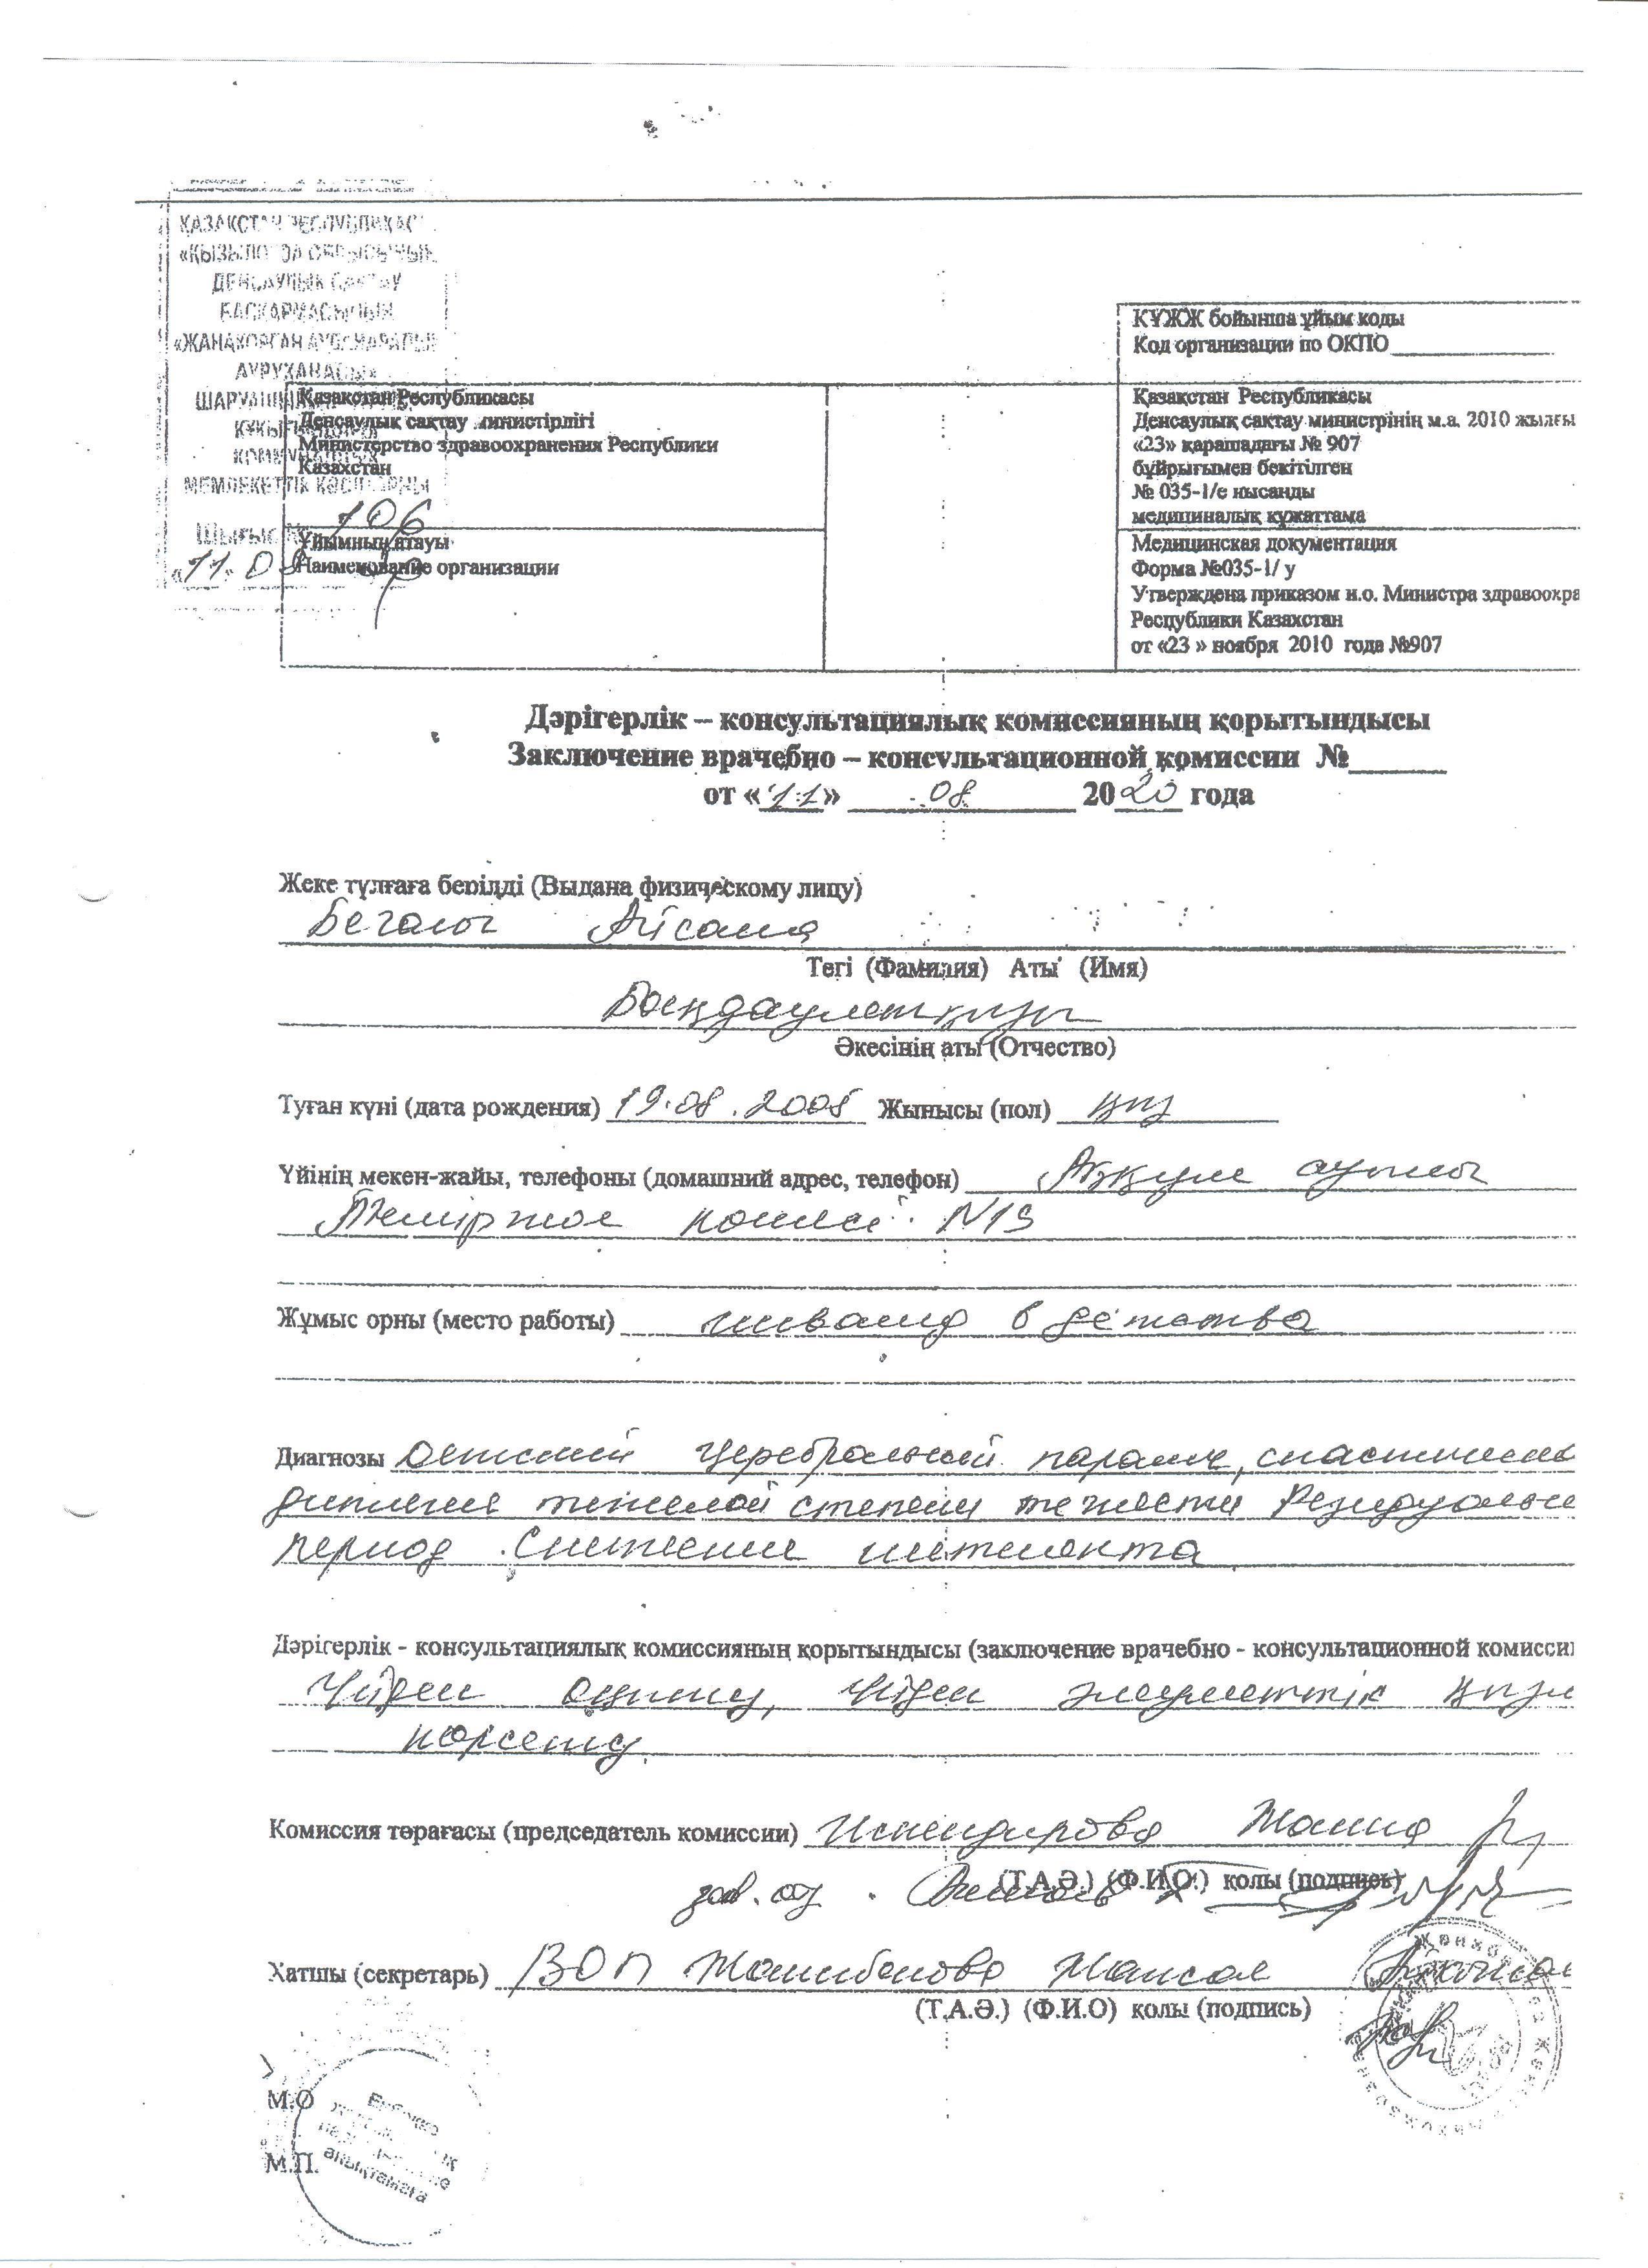 ҚАЗАҚСТАН РЕСПУБЛИКАСЫ
«ҚЫЗЫЛОРДА ОБЛЫСЫНЫҢ
ДЕНСАУЛЫҚ САҚТАУ
БАСҚАРМАСЫНЫҢ
«ЖАҢАҚОРҒАН АУДАНАРАЛЫҚ
АУРУХАНАСЫ»
МЕМЛЕКЕТТІК КӘСІПОРНЫ
Шығыс № 106
«11» 08
КҰЖЖ бойынша ұйым коды
Код организации по ОКПО
Қазақстан Республикасы
Денсаулық сақтау министірлігі
Министерство здравоохранения Республики
Казахстан
Қазақстан Республикасы
Денсаулық сақтау министрінің м.а. 2010 жылғы
«23» қарашадағы № 907
бұйрығымен бекітілген
№ 035-1/е нысанды
медициналық құжаттама
Ұйымның атауы
Наименование организации
Медицинская документация
Форма №035-1/ у
Утверждена приказом и.о. Министра здравоохра
Республики Казахстан
от «23 » ноября 2010 года №907
Дәрігерлік – консультациялық комиссияның қорытындысы
Заключение врачебно – консультационной комиссии №
от «11» 08 2020 года
Жеке тұлғаға берілді (Выдана физическому лицу)
Бегалы Айсана
Тегі (Фамилия) Аты (Имя)
Бекдаулетқызы
Әкесінің аты (Отчество)
Туған күні (дата рождения) 19.08.2005 Жынысы (пол) қыз
Үйінің мекен-жайы, телефоны (домашний адрес, телефон) Аққум ауылы
Теміржол көшесі N13
Жұмыс орны (место работы) инвалид с детства
Диагнозы Детский церебральный паралич, спастическ
диплегия тяжелой степени тяжести Резидуальн
период. Снижение интеллекта
Дәрігерлік - консультациялық комиссияның қорытындысы (заключение врачебно - консультационной комисси
Үйден оқыту, үйден әлеуметтік қызм
көрсету.
Комиссия төрағасы (председатель комиссии) Искендирова Жанна
(Т.А.Ә.) (Ф.И.О.) қолы (подпись)
зав. отд.
Хатшы (секретарь) ВОП Жанибекова Жансая
(Т.А.Ә.) (Ф.И.О) қолы (подпись)
М.О
М.П.
анықтамаға